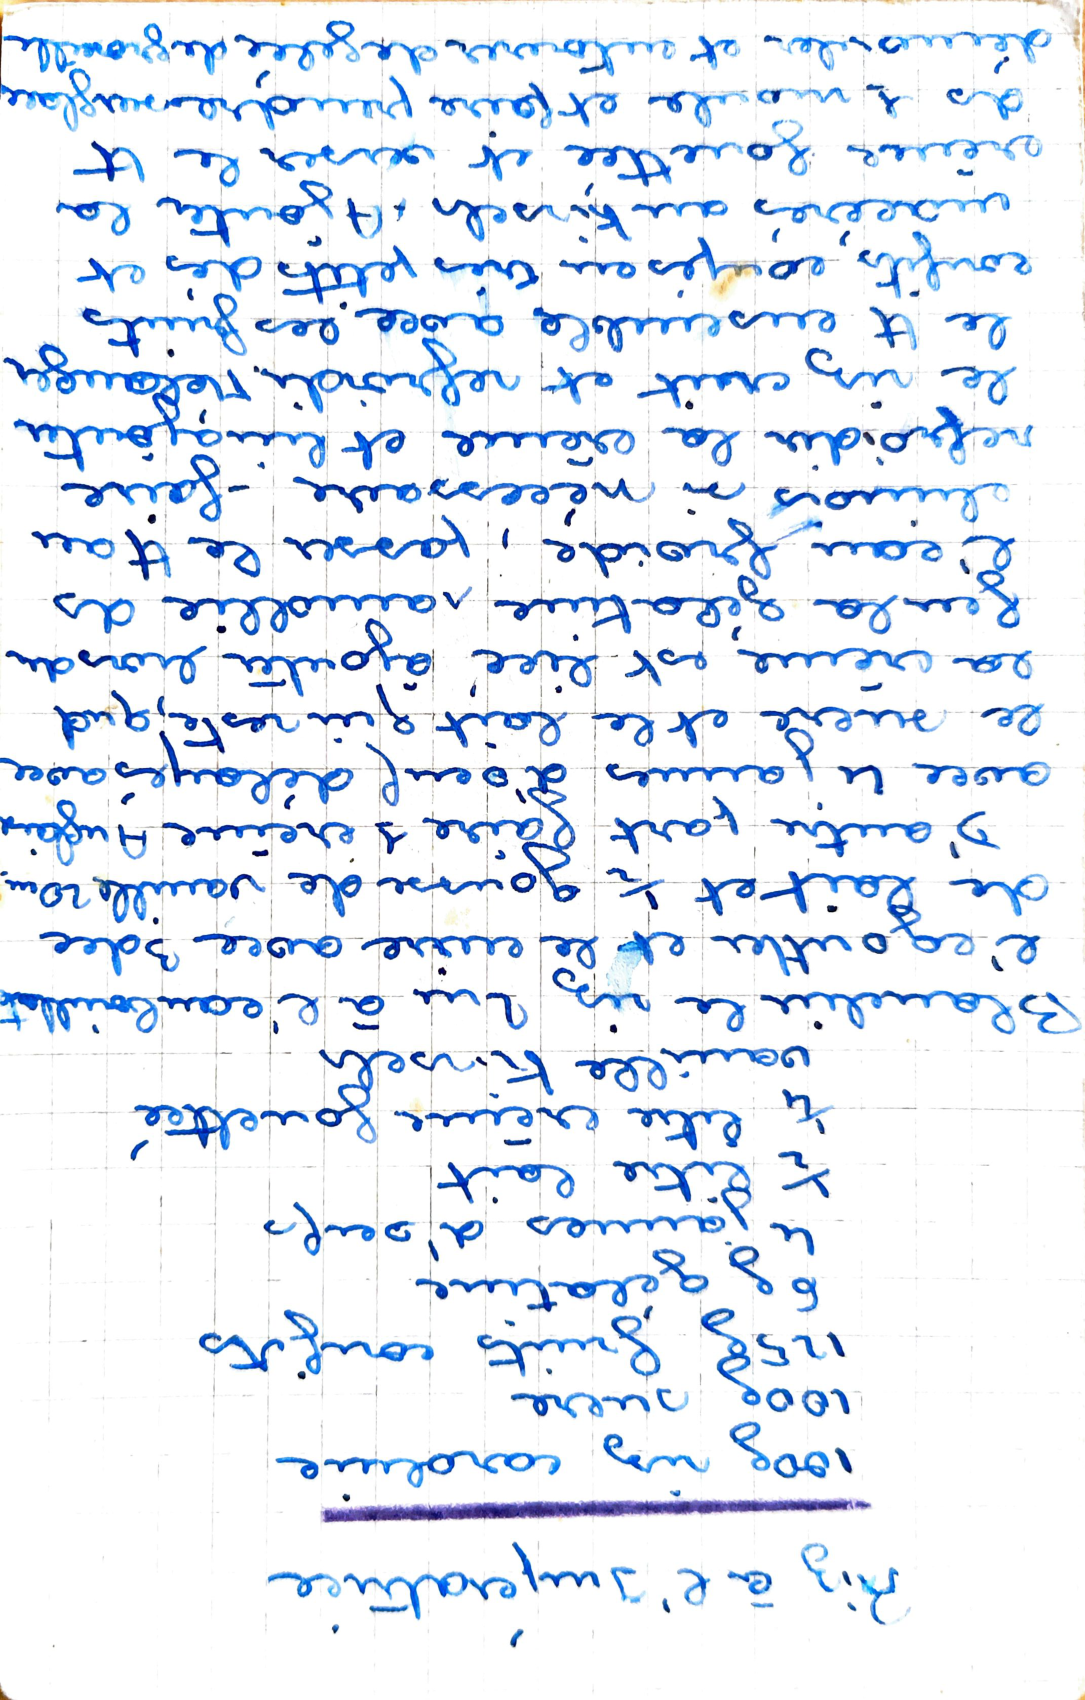 Riz à l'Impératrice
100g riz caroline
100g sucre
125g fruits confits
6g gélatine
4 jaunes d'oeufs
1/2 litre lait
1/4 litre crème fouettée
vanille Kirsch
Blanchir le riz 2m à l'eau bouillante
l'égoutter et le cuire avec 3dec
de lait et 1/2 gousse de vanille 20m.
D'autre part faire 1 crème Anglaise
avec 4 jaunes d'oeuf délayés avec
le sucre et le lait qui reste, qnd
la crème est liée, ajouter hors du
feu la gélatine ramollie ds
l'eau froide, passer le tt au
chinois si nécessaire - faire
refroidir la crème et lui ajouter
le riz cuit et refroidi. Mélanger
le tt ensemble avec les fruits
confits, coupés en très petits dés et
macérés au Kirsch. Ajouter la
crème fouettée et verser le tt
ds 1 moule et faire prendre sur glace
démouler et entourer de gelée de groseille